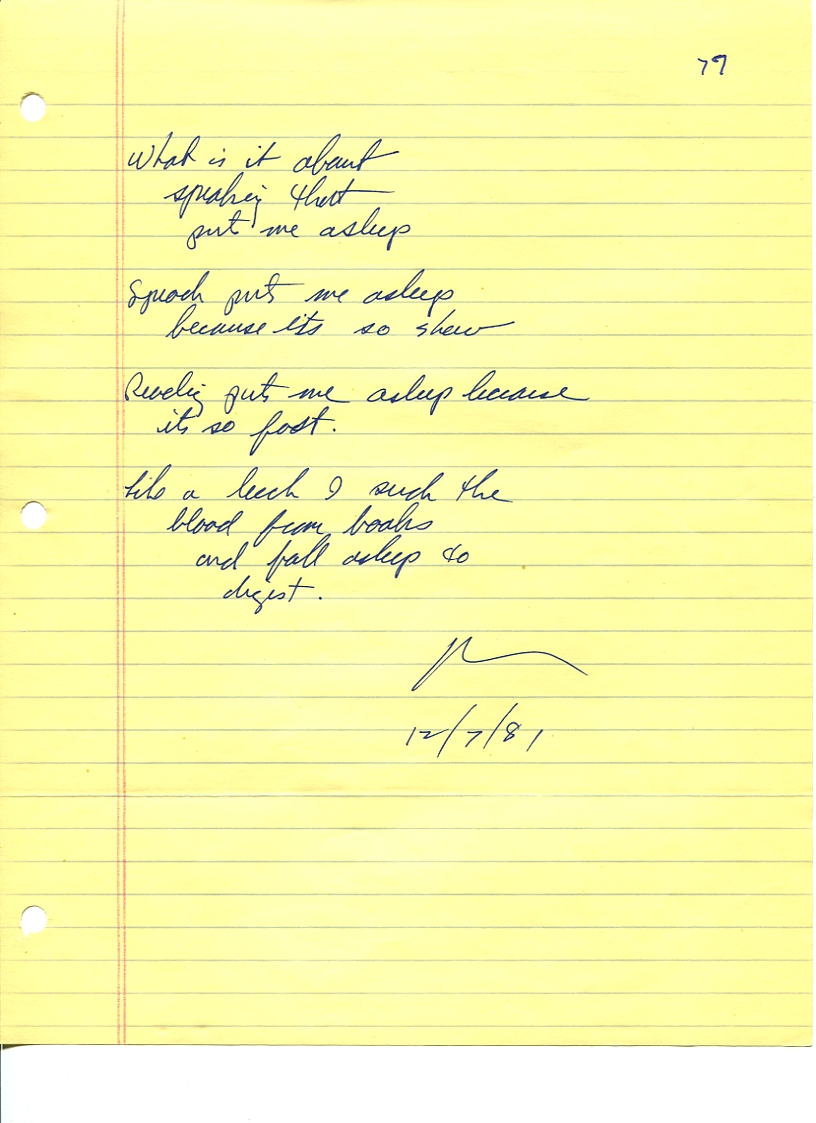 79
What is it about
speaking that
put me asleep
Speach puts me asleep
because its so slow
Reading puts me asleep because
its so fast.
Like a leech I suck the
blood from books
and fall asleep to
digest.
12/7/81